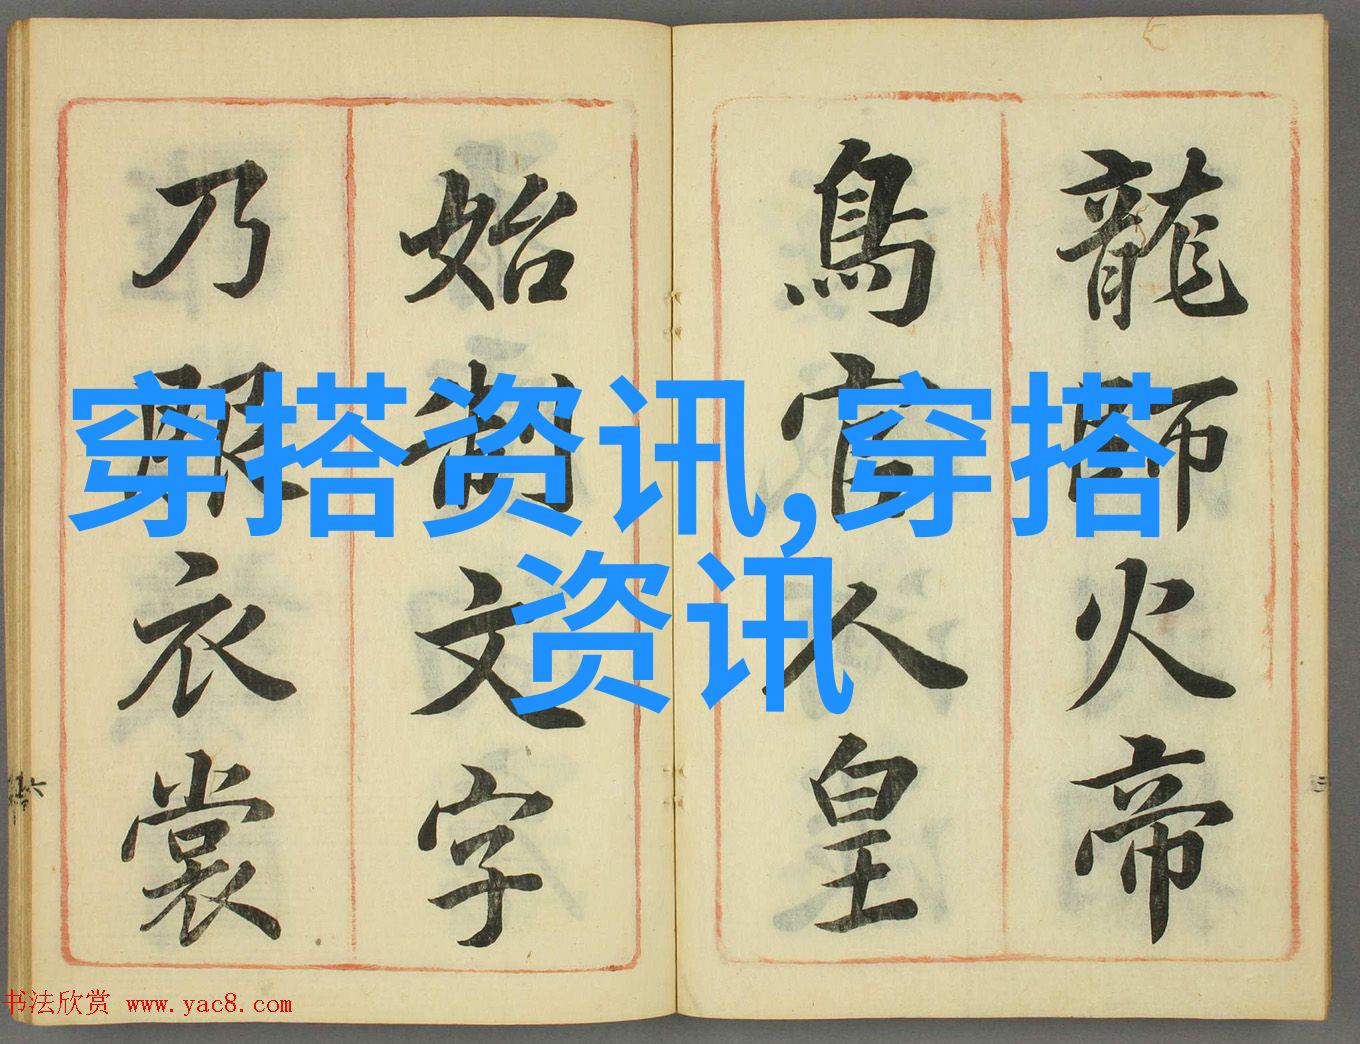 龍師火帝
鳥官人皇
始制文字
乃服衣裳
穿搭资讯,穿搭
资讯
书法欣赏 www.yac8.com